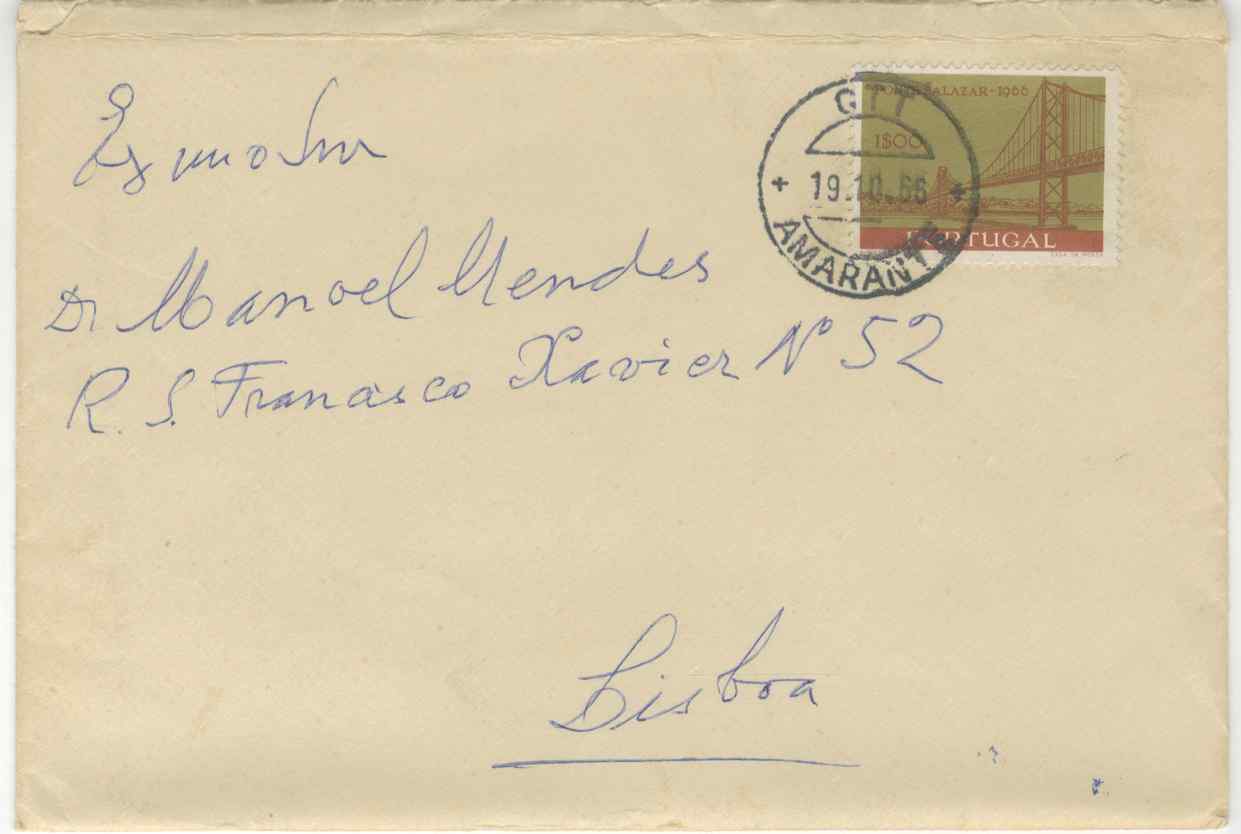 Exmo Snr
Dr Manoel Mendes
R. S. Francisco Xavier Nº 52
Lisboa
CTT
19.10.66
AMARANTE
PONTE SALAZAR-1966
1$00
PORTUGAL
CASA DA MOEDA